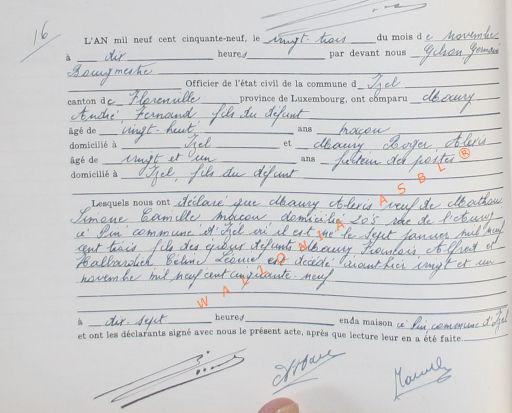 16
L'AN mil neuf cent cinquante-neuf, le vingt trois du mois de novembre
à dix heures par devant nous Gilson Germain
Bourgmestre
Officier de l'état civil de la commune d'Izel
canton de Florenville province de Luxembourg, ont comparu Maury
André, Fernand, fils du défunt
âgé de vingt-huit ans maçon
domicilié à Izel et Maury, Roger, Alexis
âgé de vingt et un ans facteur des postes
domicilié à Izel, fils du défunt
Lesquels nous ont déclaré que Maury Alexis veuf de Mathon
Simone Camille maçon domicilié 205 rue de l'
à Pin commune d'Izel où il est né le sept janvier mil neuf
cent trois fils des époux défunts Maury, François Alfred et
Céline Léonie est décédé avant hier vingt et un
novembre mil neuf cent cinquante-neuf
à dix-sept heures en da maison à Pin commune d'Izel
et ont les déclarants signé avec nous le présent acte, après que lecture leur en a été faite.
WALLONIA ASBL ®